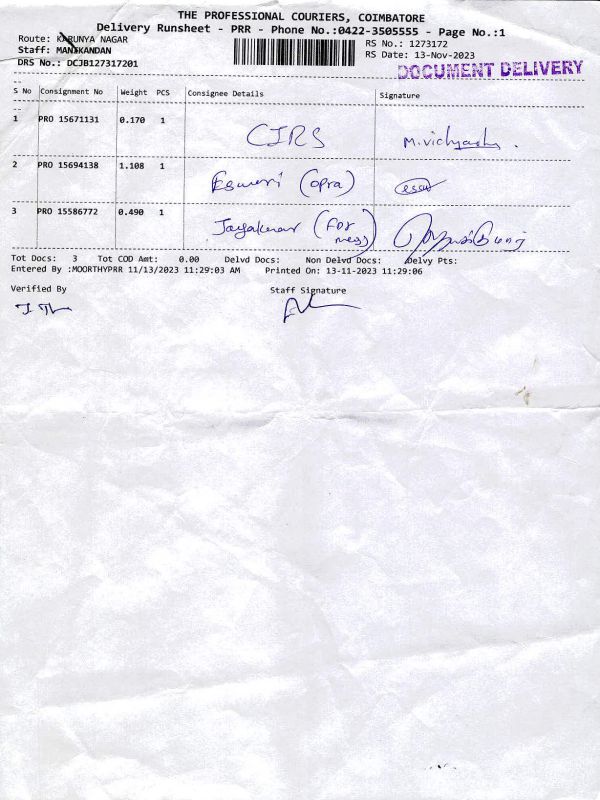 THE PROFESSIONAL COURIERS, COIMBATORE
Delivery Runsheet - PRR - Phone No.:0422-3505555 - Page No.:1
Route: KARUNYA NAGAR RS No.: 1273172
Staff: MANIKANDAN RS Date: 13-Nov-2023
DRS No.: DCJB127317201 DOCUMENT DELIVERY
S No Consignment No Weight PCS Consignee Details Signature
1 PRO 15671131 0.170 1 CIRS M.vidhyashy.
2 PRO 15694138 1.108 1 Eswari (opra)
3 PRO 15586772 0.490 1 Jayakumar (For mess)
Tot Docs: 3 Tot COD Amt: 0.00 Delvd Docs: Non Delvd Docs: Delvy Pts:
Entered By :MOORTHYPRR 11/13/2023 11:29:03 AM Printed On: 13-11-2023 11:29:06
Verified By Staff Signature